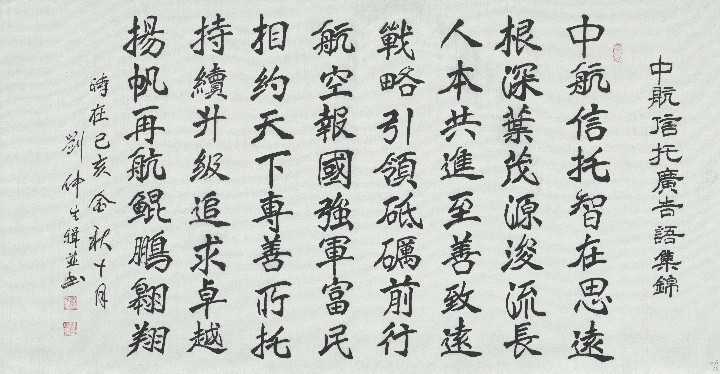 中航信托廣告語集錦
中航信托智在思遠
根深葉茂源浚流長
人本共進至善致遠
戰略引領砥礪前行
航空報國強軍富民
相約天下專善所托
持續升級追求卓越
揚帆再航鯤鵬翱翔
時在己亥金秋十月
劉仲生輯並書